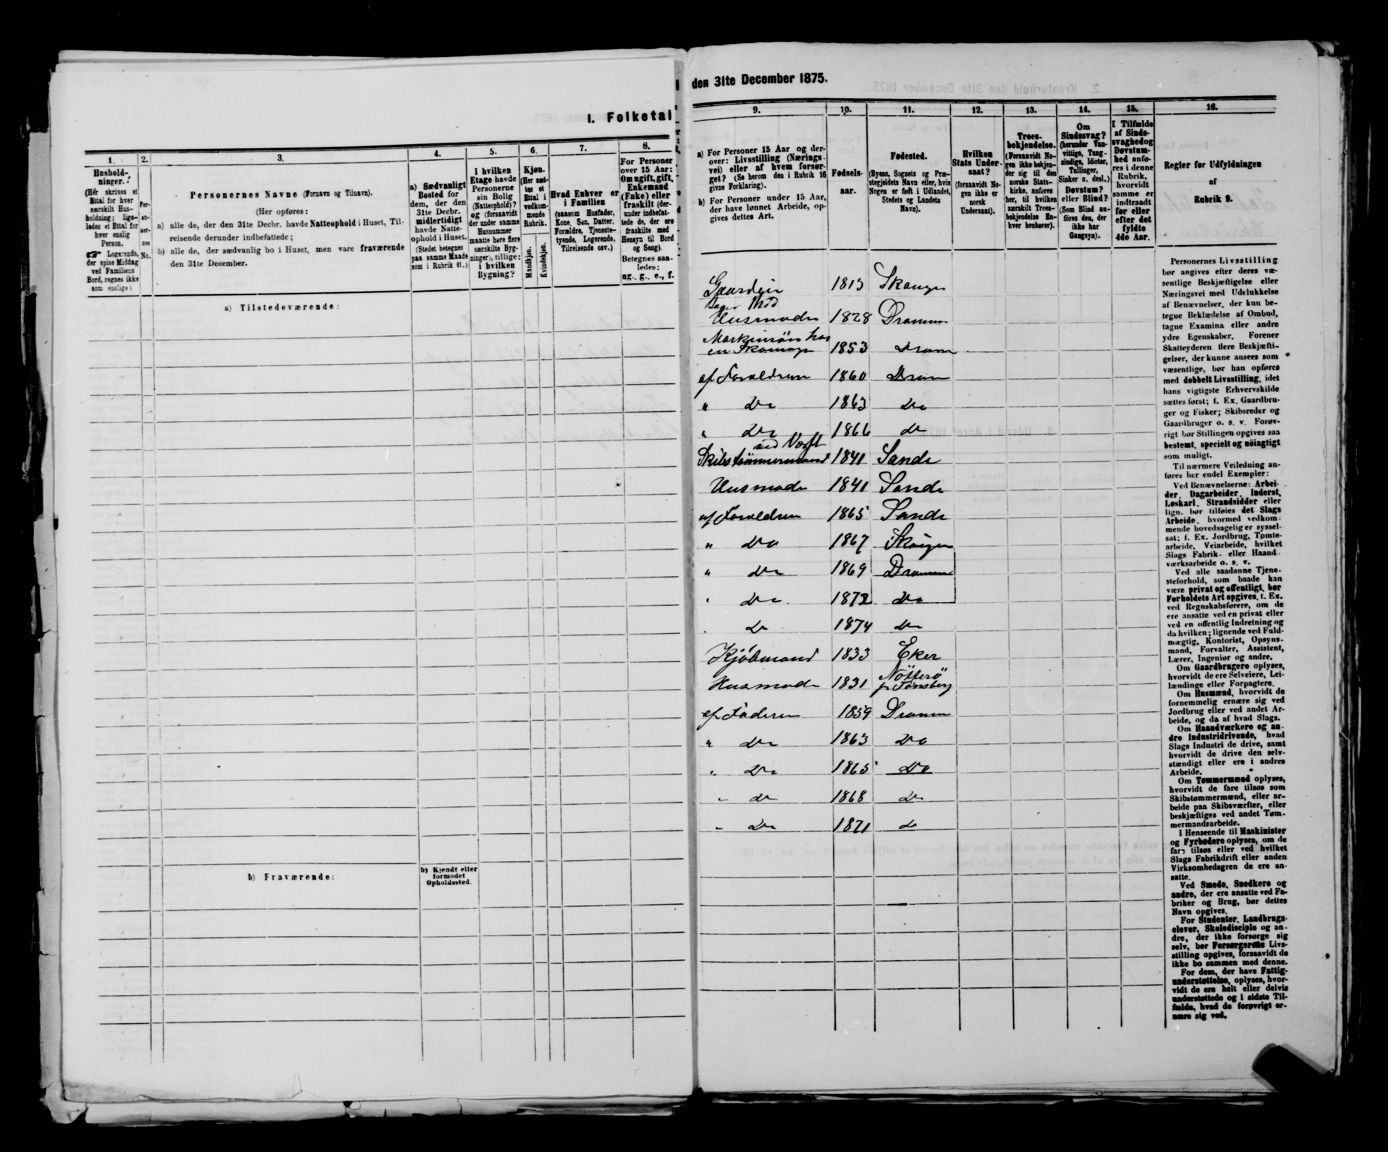 I. Folketal
1.
2.
3.
4.
5.
6.
7.
8.
Hushold-
ninger.
(Her skrives et
Ettal for hver
særskilt Hus-
holdning; lige-
ledes et Ettal for
hver enslig
Person.
☛ Logerende,
der spise Middag
ved Familiens
Bord, regnes ikke
som enslige.)
Per-
so-
ner-
nes
No.
Personernes Navne (Fornavn og Tilnavn).
(Her opføres:
a) alle de, der den 31te Decbr. havde Natteophold i Huset, Til-
reisende derunder indbefattede;
b) alle de, der sædvanlig bo i Huset, men vare fraværende
den 31te December.
a) Sædvanligt
Bosted for
dem, der den
31te Decbr.
midlertidigt
havde Natte-
ophold i Huset.
(Stedet betegnes
paa samme Maade
som i Rubrik 11.)
I hvilken
Etage havde
Personerne
sin Bolig
(Natteophold)?
og (forsaavidt
der under samme
Husnummer
maatte høre flere
særskilte Byg-
ninger), tillige:
i hvilken
Bygning?
Kjøn.
(Her sæt-
tes et
Ettal i
vedkom-
mende
Rubrik.
Mandkjøn.
Kvindekjøn.
Hvad Enhver er
i Familien
(saasom Husfader,
Kone, Søn, Datter,
Forældre, Tjeneste-
tyende, Logerende,
Tilreisende osv.)
For Personer
over 15 Aar:
Om ugift, gift,
Enkemand
(Enke) eller
fraskilt (der-
under indbefat-
tede de, der ere
fraskilte med
Hensyn til Bord
og Seng).
Betegnes saa-
ledes:
ug., g., e., f.
a) Tilstedeværende:
b) Fraværende:
b) Kjendt eller
formodet
Opholdssted.
den 31te December 1875.
9.
10.
11.
12.
13.
14.
15.
16.
a) For Personer 15 Aar og der-
over: Livsstilling (Nærings-
vei) eller af hvem forsør-
get? (Se herom den i Rubrik 16
givne Forklaring).
b) For Personer under 15 Aar,
der have lønnet Arbeide, op-
gives dettes Art.
Fødsels-
aar.
Fødested.
(Byens, Sognets og Præ-
stegjeldets Navn eller, hvis
Nogen er født i Udlandet,
Stedets og Landets
Navn).
Hvilken
Stats Under-
saat?
(forsaavidt No-
gen ikke er
norsk
Undersaat).
Troes-
bekjendelse.
(Forsaavidt No-
gen ikke bekjen-
der sig til den
norske Stats-
kirke, anføres
her, til hvilken
Troes-
bekjendelse En-
hver henhører).
Om
Sindssvag?
(herunder Van-
vittige, Tung-
sindige, Idioter,
Tullinger,
Sinker o. desl.)
Døvstum?
eller Blind?
(Som Blind an-
føres den, der
ikke har
Gangsyn).
I Tilfælde
af Sinds-
svaghed og
Døvstum-
hed anfø-
res i denne
Rubrik,
hvorvidt
samme er
indtraadt
før eller
efter det
fyldte
4de Aar.
Regler for Udfyldningen
af
Rubrik 9.
1813
Husmoder 1828 Drammen
1853 Dram
af Forældren 1860 Dram
" Do 1863 Do
" Do 1866 do
ved Værft
Skibstømmermand 1841 Sande
Husmoder 1841 Sande
af Forældren 1865 Sande
" Do 1867 Skouger
" Do 1869 Drammen
" Do 1872 Do
Do 1874 Do
Kjøbmand 1833 Eker
Nötterö
Husmoder 1831 pr Tønsberg
af Faderen 1859 Drammen
" Do 1863 Do
" Do 1865 Do
" Do 1868 Do
" Do 1871 do
Personernes Livsstilling
bør angives efter deres væ-
sentlige Beskjæftigelse eller
Næringsvei med Udelukkelse
af Benævnelser, der kun be-
tegne Beklædelse af Ombud,
tagne Examina eller andre
ydre Egenskaber. Forener
Skatteyderen flere Beskjæfti-
gelser, der kunne ansees som
væsentlige, bør han opføres
med dobbelt Livsstilling, idet
hans vigtigste Erhvervskilde
sættes først; f. Ex. Gaardbru-
ger og Fisker; Skibsreder og
Gaardbruger o. s. v. Forøv-
rigt bør Stillingen opgives saa
bestemt, specielt og nöiagtigt
som muligt.
Til nærmere Veiledning an-
føres her endel Exempler:
Ved Benævnelserne: Arbei-
der, Dagarbeider, Inderst,
Løskarl, Strandsidder eller
lign. bør tilføies det Slags
Arbeide, hvormed vedkom-
mende hovedsagelig er syssel-
sat; f. Ex. Jordbrug, Tømte-
arbeide, Veiarbeide, hvilket
Slags Fabrik- eller Haand
værksarbeide o. s. v.
Ved alle saadanne Tjene-
steforhold, som baade kan
være privat og offentligt, bør
Forholdets Art opgives, f. Ex.
ved Regnskabsførere, om de
ere ansatte ved en privat eller
ved en offentlig Indretning og
da hvilken; lignende ved Fuld-
mægtig, Kontorist, Opsyns-
mand, Forvalter, Assistent,
Lærer, Ingeniør og andre.
Om Gaardbrugere oplyses,
hvorvidt de ere Selveiere, Lei-
lændinge eller Forpagtere.
Om Husmænd, hvorvidt de
fornemmelig ernære sig ved
Jordbrug eller ved andet Ar-
beide, og da af hvad Slags.
Om Haandværkere og an-
dre Industridrivende, hvad
Slags Industri de drive, samt
hvorvidt de drive den selv-
stændigt eller ere i andres
Arbeide.
Om Tømmermænd oplyses,
hvorvidt de fare tilsøs som
Skibstømmermænd, eller ar-
beide paa Skibsværfter, eller
beskjæftiges ved andet Tøm-
mermandsarbeide.
I Henseende til Maskinister
og Fyrbødere oplyses, om de
fare tilsøs eller ved hvilket
Slags Fabrikdrift eller anden
Virksomhedsgren de ere an-
satte.
Ved Smede, Snedkere og
andre, der ere ansatte ved Fa-
briker og Brug, bør dettes
Navn opgives.
For Studenter, Landbrugs-
elever, Skoledisciple og an-
dre, der ikke forsørge sig
selv, bør Forsørgerens Livs-
stilling opgives, forsaavidt de
ikke bo sammen med denne.
For dem, der have Fattig-
understøttelse, oplyses, hvor-
vidt de ere helt eller delvis
understøttede og i sidste Til-
fælde, hvad de forøvrigt er-
nære sig ved.